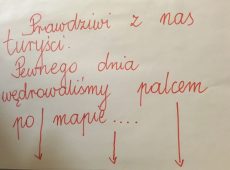 Prawdziwi z nas
turyści.
Pewnego dnia
wędrowaliśmy palcem
po mapie....